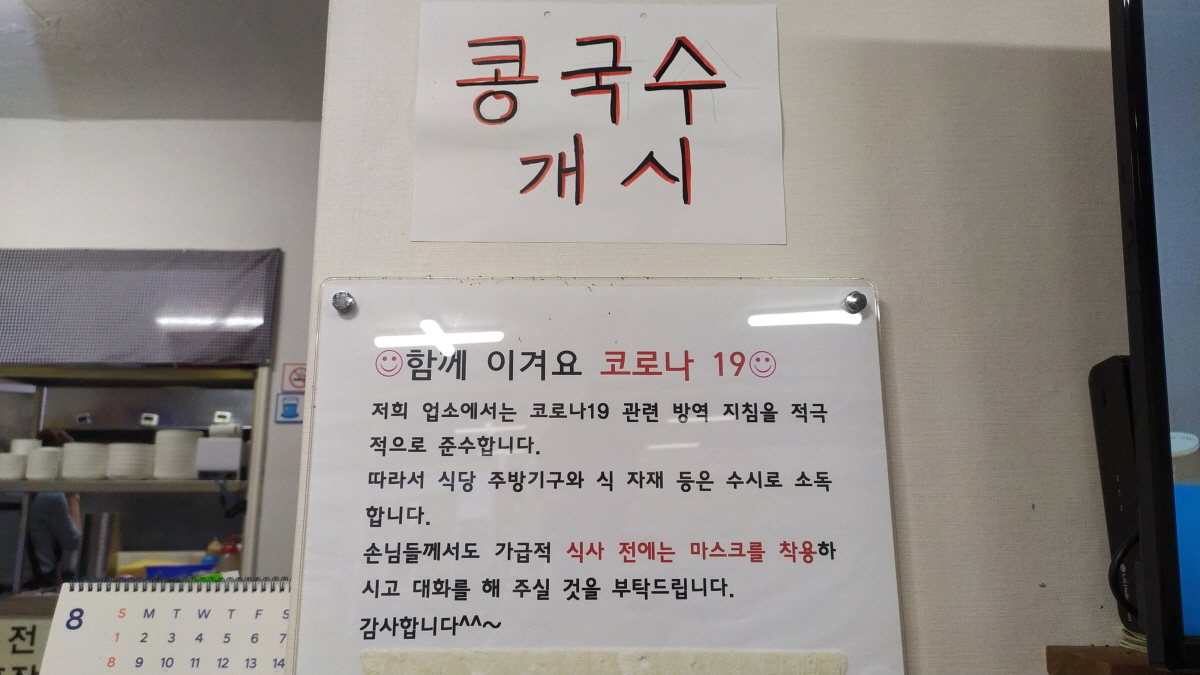 콩국수
개시
함께 이겨요 코로나 19
저희 업소에서는 코로나19 관련 방역 지침을 적극
적으로 준수합니다.
따라서 식당 주방기구와 식 자재 등은 수시로 소독
합니다.
손님들께서도 가급적 식사 전에는 마스크를 착용하
시고 대화를 해 주실 것을 부탁드립니다.
감사합니다^^~
8
S M T W T F S
1 2 3 4 5 6 7
8 9 10 11 12 13 14
전